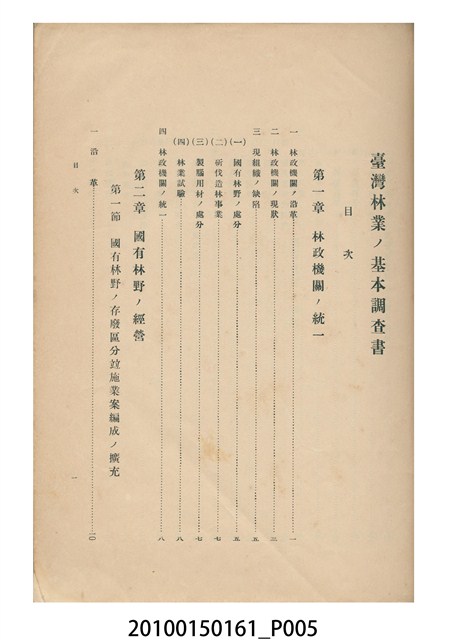 臺灣林業ノ基本調査書
目次
第一章 林政機關ノ統一
一 林政機關ノ沿革……一
二 林政機關ノ現狀……三
三 現組織ノ缺陷……五
(一) 國有林野ノ處分……五
(二) 斫伐造林事業……七
(三) 製腦用材ノ處分……七
(四) 林業試驗……八
四 林政機關ノ統一……八
第二章 國有林野ノ經營
第一節 國有林野ノ存廢區分竝施業案編成ノ擴充
一 沿革……一〇
目次
一
20100150161_P005